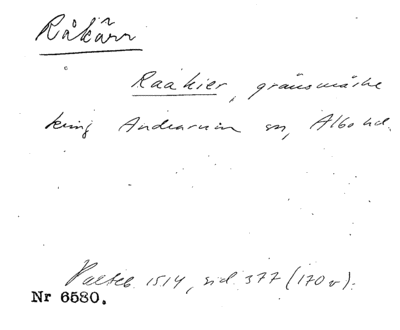 Råkärr
Raakier, gränsmärke
kring Andrarum sn, Albo hd.
Palteb. 1514, sid 377 (170 v).
Nr 6580.